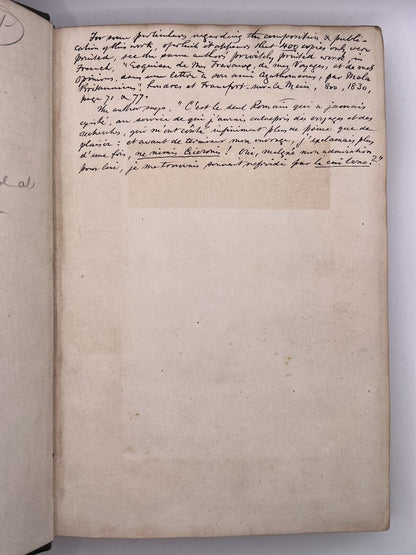 For some particulars regarding the composition & publi-
cation of this work, of which it appears that 400 copies only were
printed, see the same author's privately printed work in
French, "Esquisse de Mes Travaux, de mes Voyages, et de mes
Opinions, dans une lettre à mon ami Agathomerus, par Mela
Britannicus; Londres et Francfort-sur-le-Mein, 8vo, 1830,
page 71 & 77.
The author says, "C'est le seul Romain qui a jamais
existé, au service de qui j'aurais entrepris des voyages et des
recherches, qui m'ont coûté infiniment plus de peine que de
plaisir: et avant de terminer mon ouvrage, j'exclamais plus
d'une fois, ne nimis Ciceronis! Oui, malgré mon admiration
pour lui, je me trouvais souvent refroidi par le cui bono?"